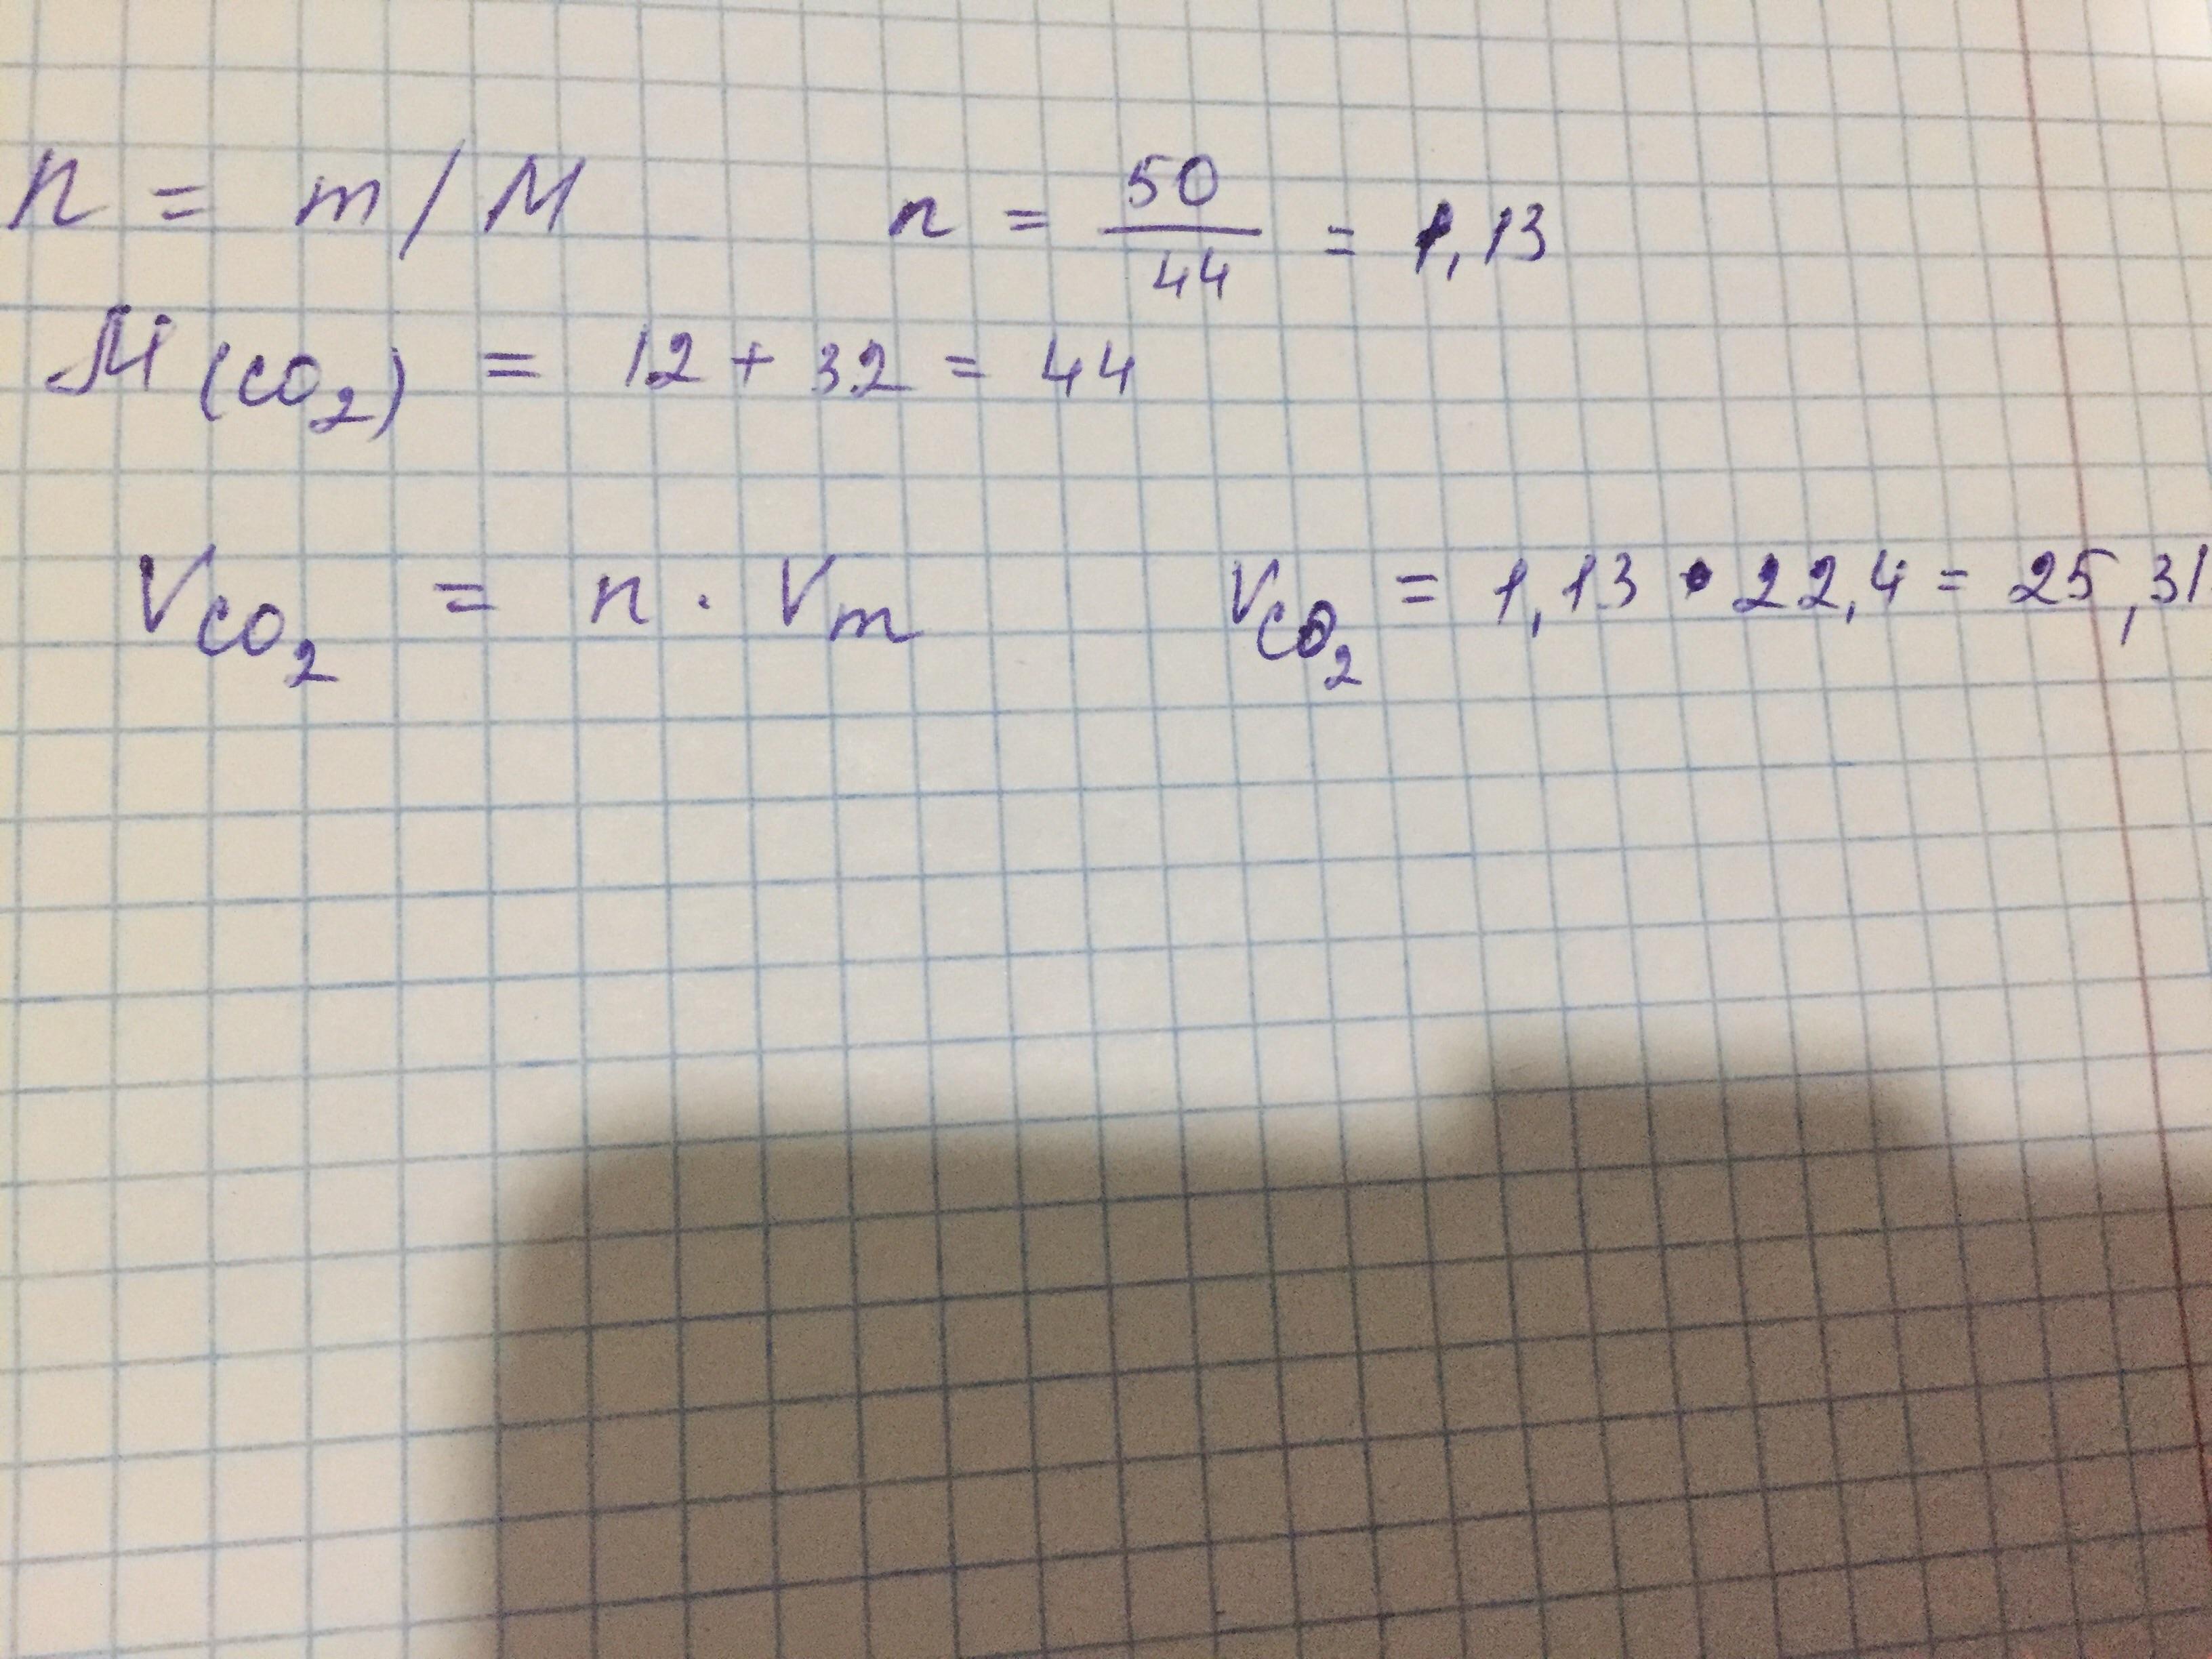 n = m / M n = 50/44 = 1,13
M (CO₂) = 12 + 32 = 44
V CO₂ = n · Vm V CO₂ = 1,13 • 22,4 = 25,31